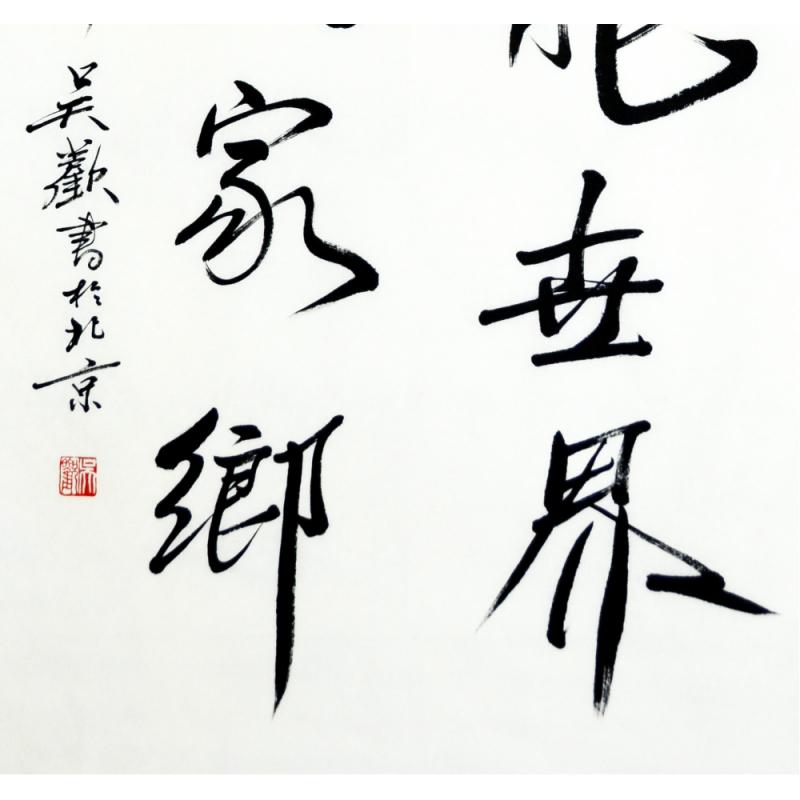 世界
家鄉
吳歡書於北京
吳歡